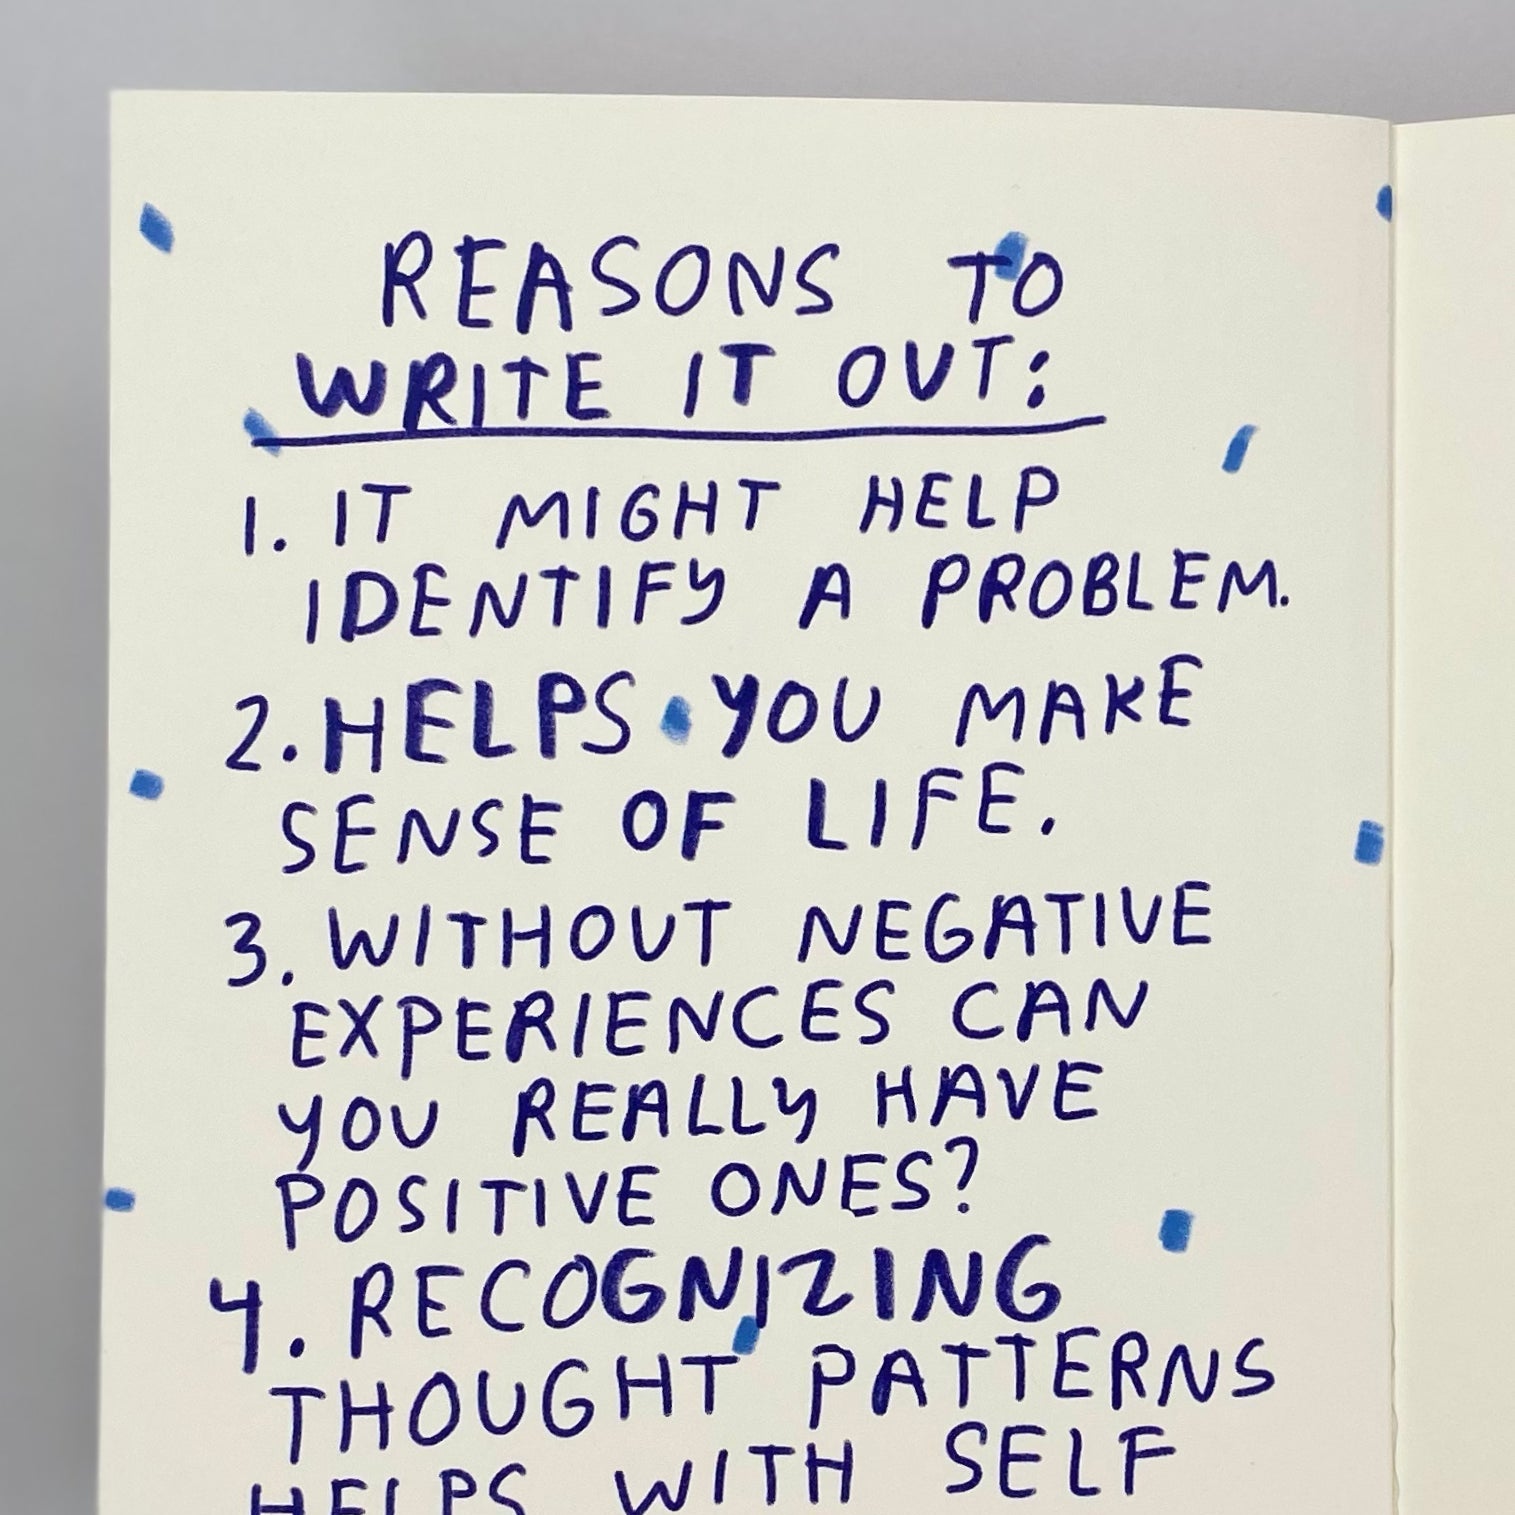 REASONS TO
WRITE IT OUT:
1. IT MIGHT HELP
IDENTIFY A PROBLEM.
2. HELPS YOU MAKE
SENSE OF LIFE.
3. WITHOUT NEGATIVE
EXPERIENCES CAN
YOU REALLY HAVE
POSITIVE ONES?
4. RECOGNIZING
THOUGHT PATTERNS
HELPS WITH SELF